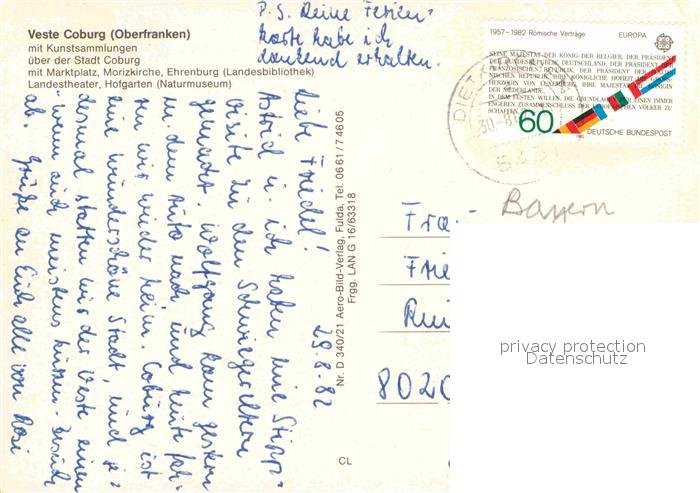 Veste Coburg (Oberfranken)
mit Kunstsammlungen
über der Stadt Coburg
mit Marktplatz, Morizkirche, Ehrenburg (Landesbibliothek)
Landestheater, Hofgarten (Naturmuseum)
P.S. Deine Ferien-
karte habe ich
dankend erhalten.
29.8.82
Liebe Friedel!
Astrid u. ich haben eine Stipp-
visite zu den Schwiegereltern
gemacht. Wolfgang kam gestern
mit dem Auto nach und heute fah-
ren wir wieder heim. Coburg ist
eine wunderschöne Stadt, und je-
desmal statten wir der Veste einen
wenn auch meistens kurzen - Besuch
ab. Grüße an Euch alle von Rosi
Nr. D 340/21 Aero-Bild-Verlag, Fulda, Tel. 06 61/7 46 05
Frgg. LAN G 16/63318
CL
1957-1982 Römische Verträge EUROPA
SEINE MAJESTÄT DER KÖNIG DER BELGIER, DER PRÄSIDENT
DER BUNDESREPUBLIK DEUTSCHLAND, DER PRÄSIDENT DER
FRANZÖSISCHEN REPUBLIK, DER PRÄSIDENT DER ITALIE-
NISCHEN REPUBLIK, IHRE KÖNIGLICHE HOHEIT DIE GROSS-
HERZOGIN VON LUXEMBURG, IHRE MAJESTÄT DIE KÖNIGIN
DER NIEDERLANDE,
IN DEM FESTEN WILLEN, DIE GRUNDLAGEN FÜR EINEN IMMER
ENGEREN ZUSAMMENSCHLUSS DER EUROPÄISCHEN VÖLKER ZU
SCHAFFEN
60
DEUTSCHE BUNDESPOST
Bayern
Fra
Frie
8020
privacy protection
Datenschutz